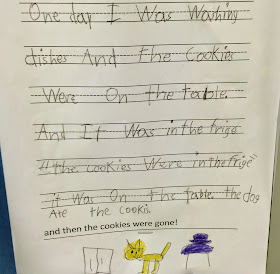 One day I Was Washing
dishes And the Cookies
Were On the table.
And It Was in the frige
"the cookies Were in the frige"
it Was On the table. the dog
Ate the Cookis.
and then the cookies were gone!